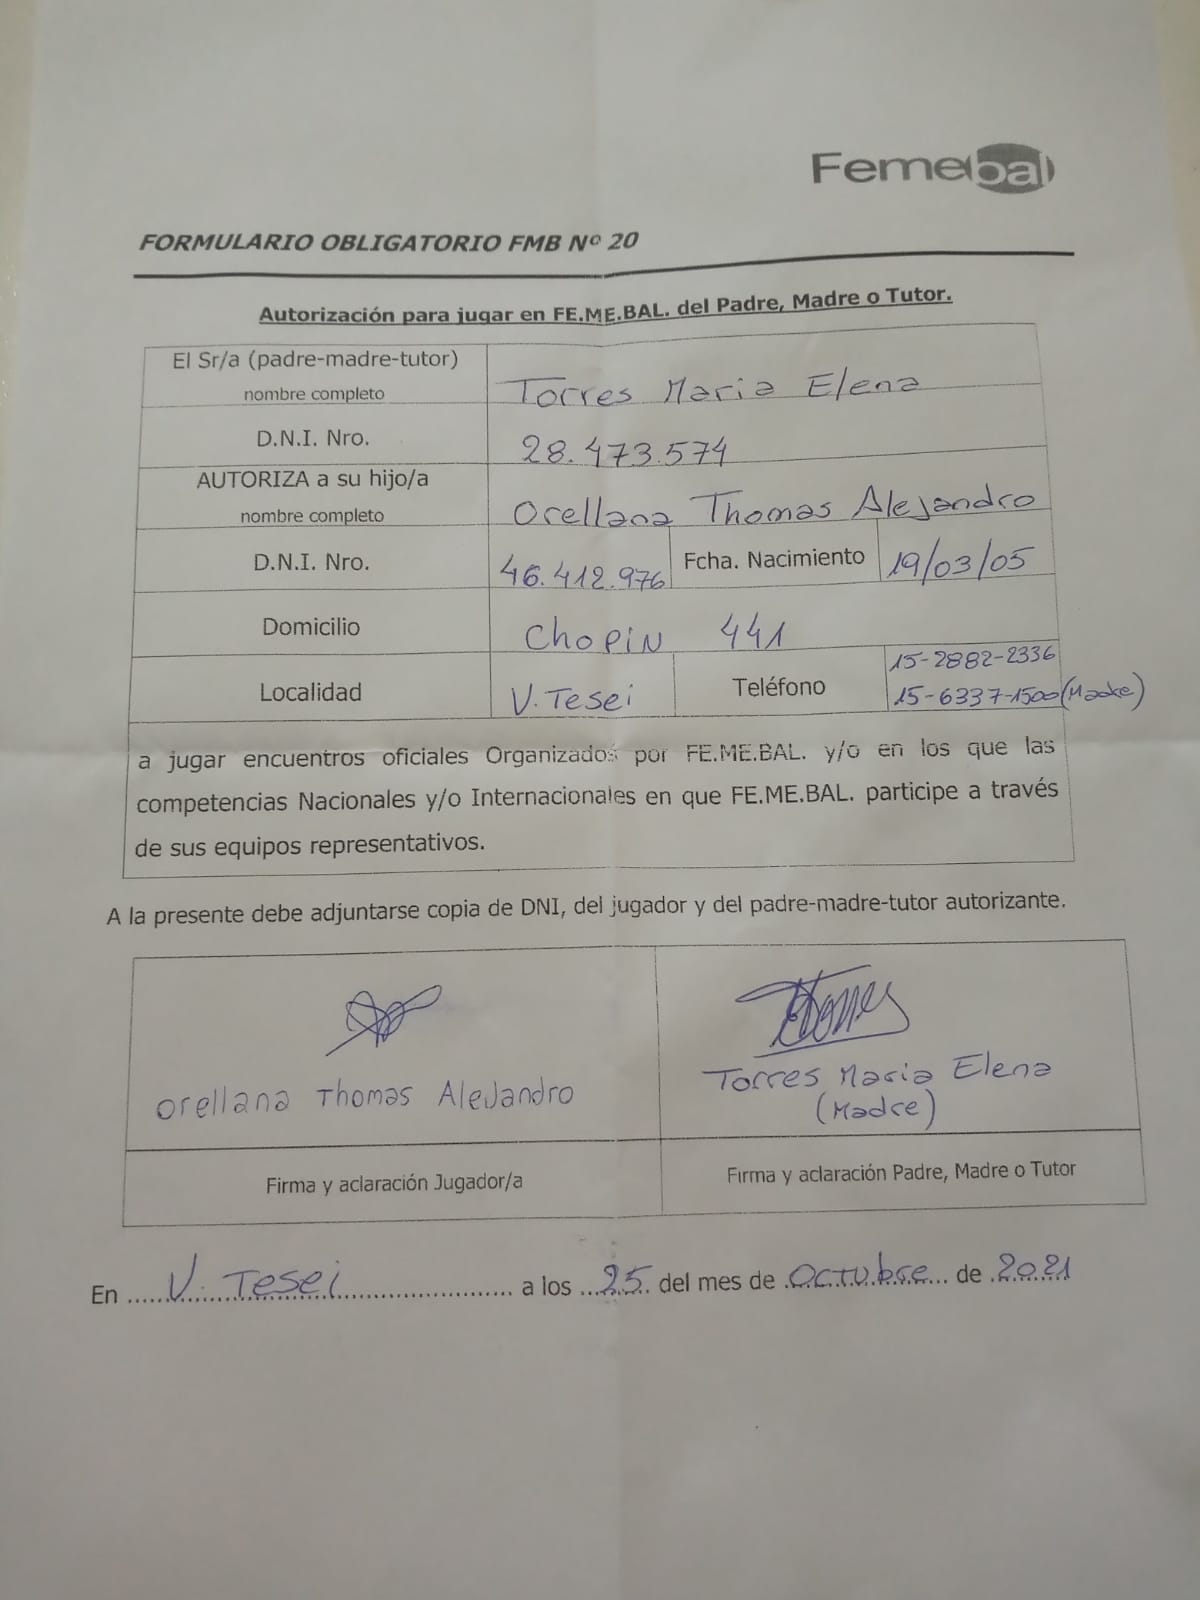 Femebal
FORMULARIO OBLIGATORIO FMB Nº 20
Autorización para jugar en FE.ME.BAL. del Padre, Madre o Tutor.
El Sr/a (padre-madre-tutor)
nombre completo
Torres Maria Elena
D.N.I. Nro.
28.473.574
AUTORIZA a su hijo/a
nombre completo
Orellana Thomas Alejandro
D.N.I. Nro.
46.412.976
Fcha. Nacimiento
19/03/05
Domicilio
Chopin 441
Localidad
V. Tesei
Teléfono
15-2882-2336
15-6337-1500 (Madre)
a jugar encuentros oficiales Organizados por FE.ME.BAL. y/o en los que las
competencias Nacionales y/o Internacionales en que FE.ME.BAL. participe a través
de sus equipos representativos.
A la presente debe adjuntarse copia de DNI, del jugador y del padre-madre-tutor autorizante.
Orellana Thomas Alejandro
Firma y aclaración Jugador/a
Torres
Torres Maria Elena
(Madre)
Firma y aclaración Padre, Madre o Tutor
En ...... V. Tesei ...... a los ...25.. del mes de .Octubre... de .2021